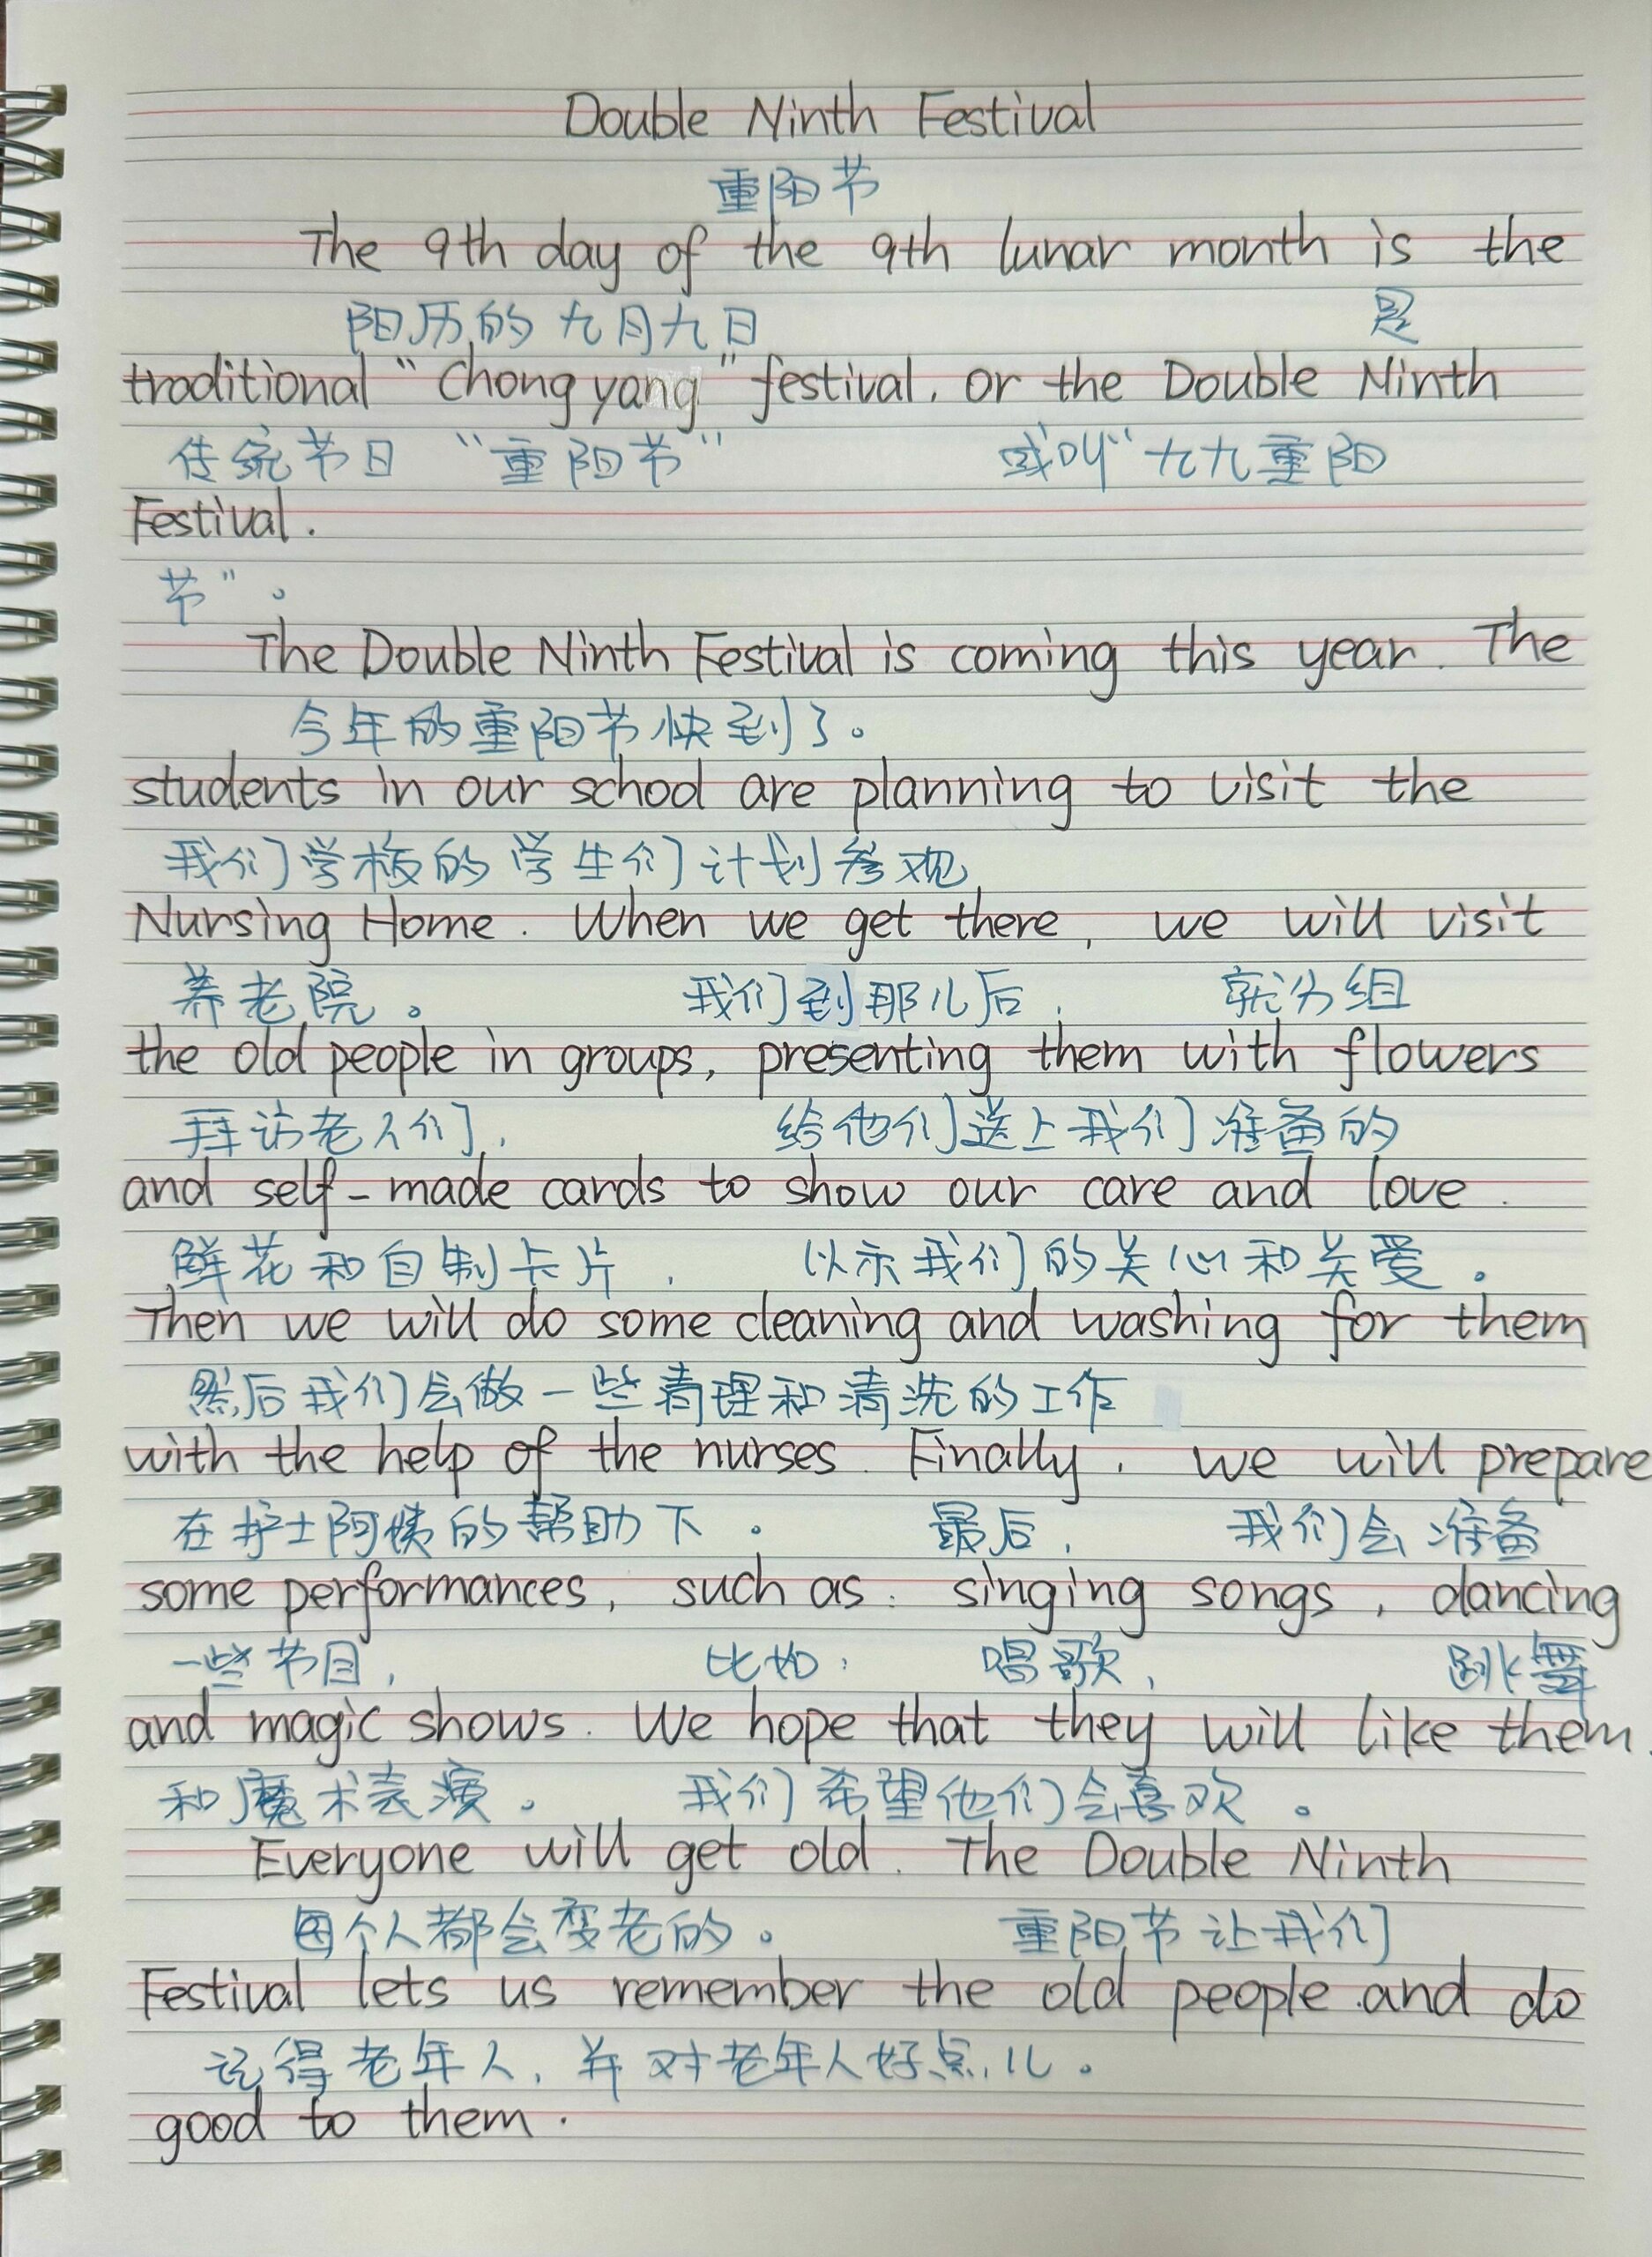 Double Ninth Festival
重阳节
The 9th day of the 9th lunar month is the
阳历的九月九日 是
traditional "Chongyang" festival, or the Double Ninth
传统节日 "重阳节" 或叫"九九重阳
Festival.
节"。
The Double Ninth Festival is coming this year. The
今年的重阳节快到了。
students in our school are planning to visit the
我们学校的学生们计划参观
Nursing Home. When we get there, we will visit
养老院。 我们到那儿后, 就分组
the old people in groups, presenting them with flowers
拜访老人们, 给他们送上我们准备的
and self-made cards to show our care and love.
鲜花和自制卡片, 以示我们的关心和关爱。
Then we will do some cleaning and washing for them
然后我们会做一些清理和清洗的工作
with the help of the nurses. Finally, we will prepare
在护士阿姨的帮助下。 最后, 我们会准备
some performances, such as: singing songs, dancing
一些节目, 比如: 唱歌, 跳舞
and magic shows. We hope that they will like them.
和魔术表演。 我们希望他们会喜欢。
Everyone will get old. The Double Ninth
每个人都会变老的。 重阳节让我们
Festival lets us remember the old people and do
记得老年人, 并对老年人好点儿。
good to them.